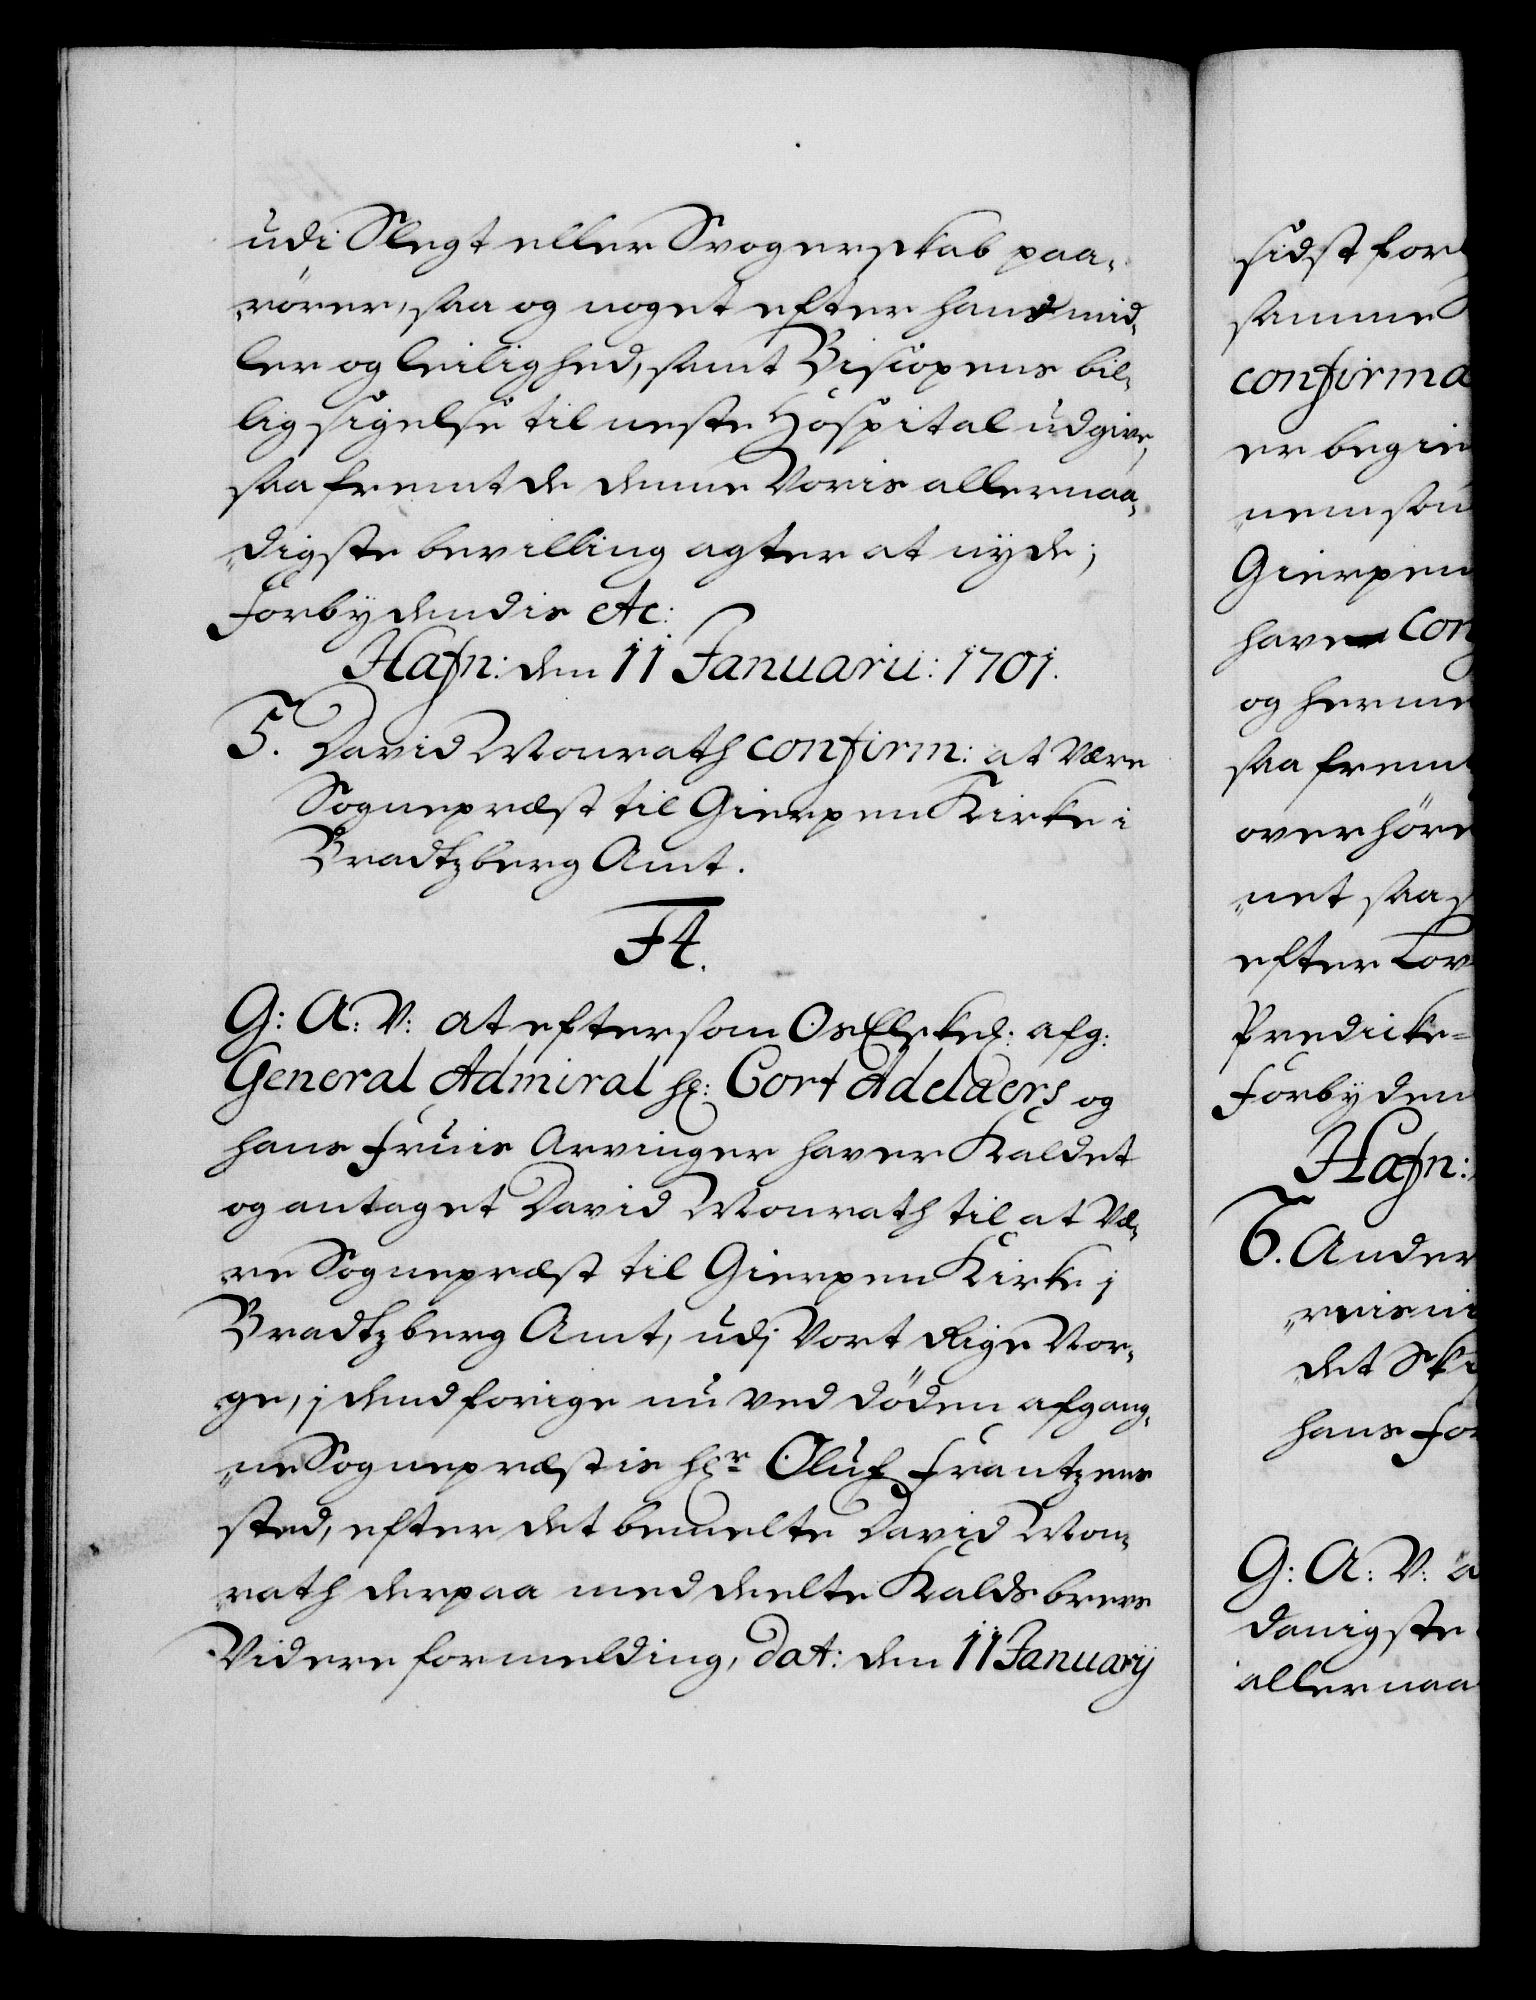 udi Slegt eller Svogerskab paa¬
rörer, saa og noget efter hans mid¬
ler og leilighed, samt Biscopens bil¬
lig sigelse til neste Hospital udgive,
saafremt de denne Voris allernaa¬
digste bevilling agter at nyde;
Forbydendis etc:
Hafn: den 11 Januarii: 1701.
5. David Monrath confirm: at være
Sognepræst til Gierpen Kirke i
Bradtzberg Amt.
F4.
G: A: V: at eftersom Os Elskel: afg:
General Admiral Hr: Cort Adelaers og
hans Fruis Arvinger haver Kaldet
og antaget David Monrath til at Væ¬
re Sognepræst til Gierpen Kirke j
Bradtzberg Amt, udj Vort Rige Nor¬
ge, j dend forige nu ved döden afgang¬
ne Sognepræstis Hr. Oluf Frantzens
sted, efter det bemelte David Mon¬
rath derpaa meddeelte Kalds brevs
Videre formelding, dat: den 11 January
sidst for
samme
confirma
er begie
nem son
Gierpen
have Con
og herme
saa frem
overhöre
net saa
efter Lov
Predicke-
Forbyden
Hafn:
6. Ander
det Sk
hans For
G: A: V: a
danigste
allernaa